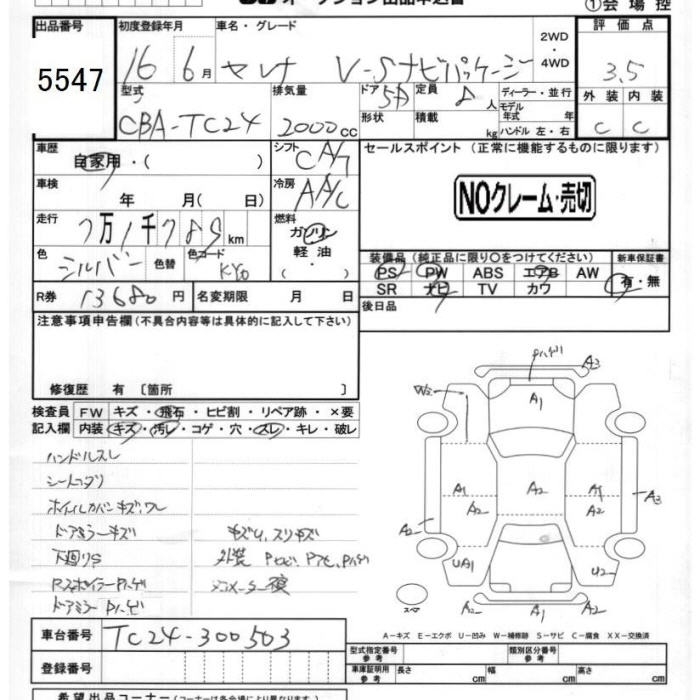 オークション出品申込書
①会場控
出品番号
5547
初度登録年月
16 6月
車名・グレード
セレナ V-Sナビパッケージ
2WD・4WD
評価点
3.5
型式
CBA-TC24
排気量
2000cc
ドア
5D
形状
定員
8人
積載
kg
ディーラー・並行
モデル年式 年
ハンドル 左・右
外装 内装
C C
車歴
自家用・( )
シフト
CA/7
セールスポイント (正常に機能するものに限ります)
NOクレーム・売切
車検
年 月( 日)
冷房
AAC
走行
7万1千789km
燃料
ガソリン
軽油
( ・ )
色
シルバー
色替
色コード
KY0
装備品 (純正品に限り〇をつけてください)
新車保証書
PS PW ABS エアB AW
SR ナビ TV カワ
有・無
R券
13680円
名変期限 月 日
後日品
注意事項申告欄 (不具合内容等は具体的に記入して下さい)
修復歴 有 〔箇所 〕
検査員記入欄
FW キズ・飛石・ヒビ割・リペア跡・×要
内装 キズ・汚レ・コゲ・穴・スレ・キレ・破レ
ハンドルスレ
シートコゲリ
ホイルカバーキズ、ワレ
ドアミラーキズ
下廻りS
RスポイラーPハゲ
ドアミラーPハゲ
キズ小、スリキズ
外装
Pハゲ
A3
A1
W2
A1
A2
A2
A1
A2
A3
A2
UA1
U2
A2
A1
A2
スペア
A-キズ E-エクボ U-凹み W-補修跡 S-サビ C-腐食 XX-交換済
車台番号
TC24-300503
登録番号
型式指定番号 参考
類別区分番号 参考
車庫証明用 参考
長さ cm
幅 cm
高さ cm
希望出品コーナー (コーナーは各会場により異なります)